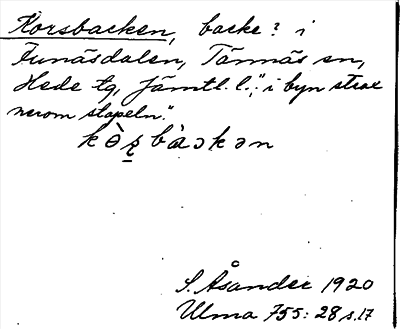 Korsbacken, backe? i
Funäsdalen, Tännäs sn,
Hede tg, Jämtl. l.; "i byn strax
nerom stapeln."
kò̱ʂbàəkən
S. Åsander 1920
Ulma 755: 28 s. 17